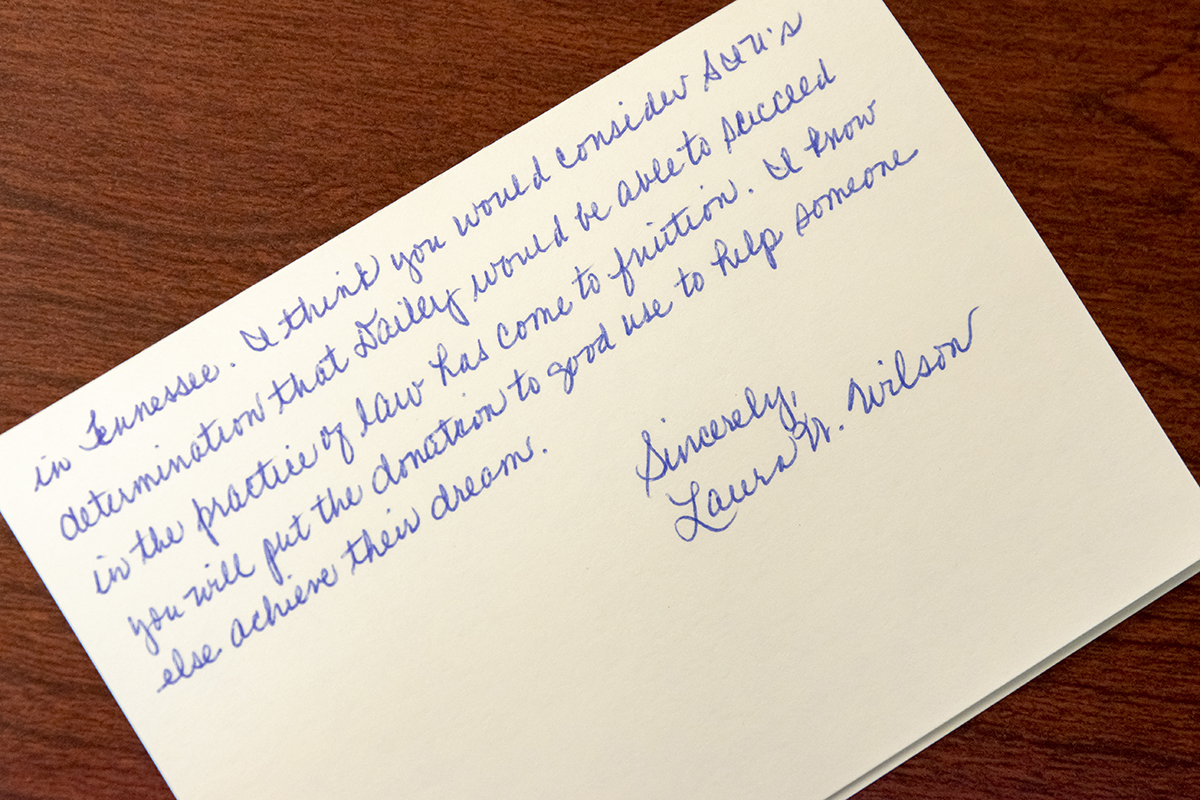 in Tennessee. I think you would consider
determination that Dailey would be able to succeed
in the practice of law has come to fruition. I know
you will put the donation to good use to help someone
else achieve their dream.
Sincerely,
Laura W. Wilson